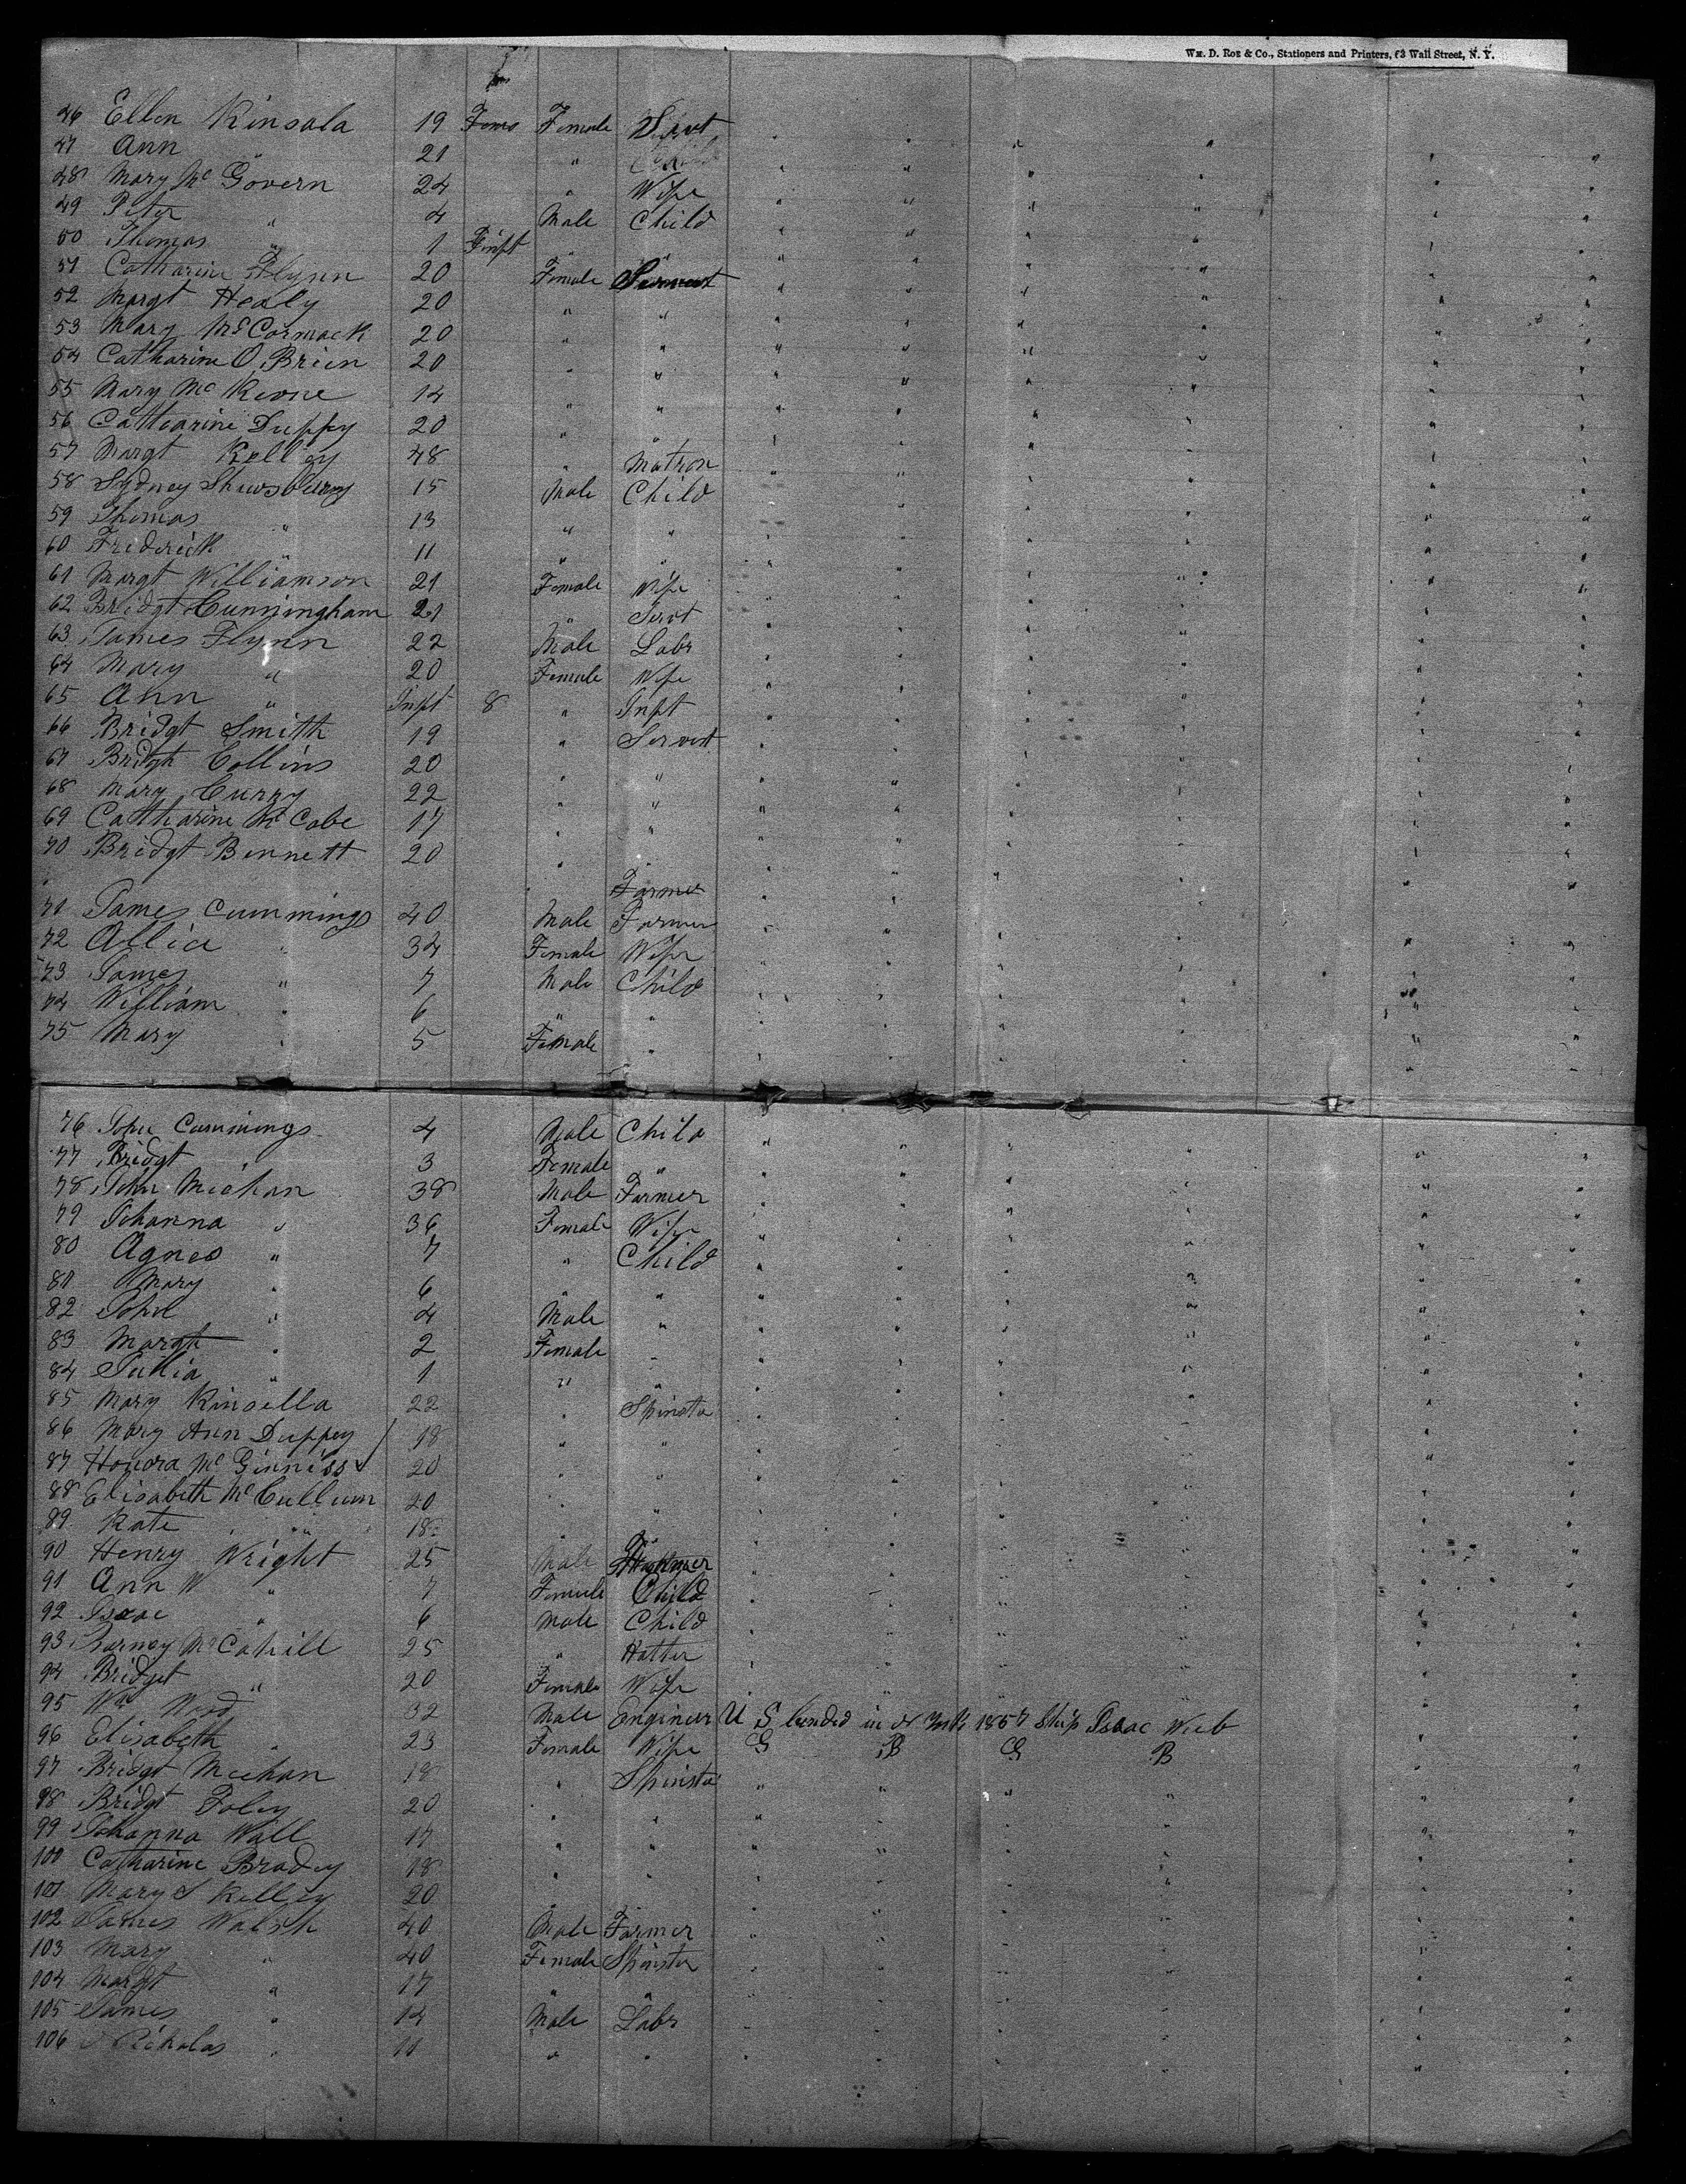 Wm. D. Roe & Co., Stationers and Printers, 63 Wall Street, N. Y.
46 Ellen Kinsala 19 Female Servt " " " " " "
47 Ann " 21 "
48 Mary Mc Govern 24 " Wife " " " " " "
49 Peter " 4 Male Child " " " " " "
50 Thomas " 1 Infpt " " " " " " " "
51 Catharine Flynn 20 Female Servant " " " " " "
52 Margt Healy 20 " " " " " " " "
53 Mary McCormack 20 " " " " " " " "
54 Catharine O Brien 20 " " " " " " " "
55 Mary Mc Keone 14 " " " " " " " "
56 Catharine Duffy 20 " " " " " " " "
57 Margt Kelley 48 " Matron " " " " " "
58 Sydney Shewsburry 15 Male Child " " " " " "
59 Thomas " 13 " " " " " " " "
60 Frederick " 11 " " " " " " " "
61 Margt Williamson 21 Female Wife " " " " " "
62 Bridgt Cunningham 21 " Servt " " " " " "
63 James Flynn 22 Male Labr " " " " " "
64 Mary " 20 Female Wife " " " " " "
65 Ann " Inft 8 " Inft " " " " " "
66 Bridgt Smith 19 " Servant " " " " " "
67 Bridgt Collins 20 " " " " " " " "
68 Mary Curry 22 " " " " " " " "
69 Catharine Mc Cabe 17 " " " " " " " "
70 Bridgt Bennett 20 " " " " " " " "
Farmer
71 James Cummings 40 Male Farmer " " " " " "
72 Allice " 34 Female Wife " " " " " "
73 James " 7 Male Child " " " " " "
74 William " 6 " " " " " " " "
75 Mary " 5 Female " " " " " " "
76 John Cummings 4 Male Child " " " " " "
77 Bridgt " 3 Female " " " " " " "
78 John Meehan 38 Male Farmer " " " " " "
79 Johanna " 36 Female Wife " " " " " "
80 Agnes " 7 " Child " " " " " "
81 Mary " 6 " " " " " " " "
82 John " 4 Male " " " " " " "
83 Margt " 2 Female " " " " " " "
84 Julia " 1 " " " " " " " "
85 Mary Kinsella 22 " Spinster " " " " " "
86 Mary Ann Duffey 18 " " " " " " " "
87 Honora Mc Ginniss 20 " " " " " " " "
88 Elisabeth Mc Cullum 20 " " " " " " " "
89 Kate " 18 " " " " " " " "
90 Henry Wright 25 Male Farmer " " " " " "
91 Ann W " 7 Female Child " " " " " "
92 Isaac " 6 Male Child " " " " " "
93 Barney Mc Cahill 25 " Hatter " " " " " "
94 Bridget " 20 Female Wife " " " " " "
95 Wm Ward 32 Male Engineer U S landed in N York 1857 Ship Isaac Web
96 Elisabeth " 23 Female Wife G B G B " "
97 Bridgt Meehan 18 " Spinster " " " " " "
98 Bridgt Foley 20 " " " " " " " "
99 Johanna Wall 17 " " " " " " " "
100 Catharine Bradey 18 " " " " " " " "
101 Mary S Kelley 20 " " " " " " " "
102 James Walsh 40 Male Farmer " " " " " "
103 Mary " 40 Female Spinster " " " " " "
104 Margt " 17 " " " " " " " "
105 James " 14 Male Labr " " " " " "
106 Nicholas " 11 " " " " " " " "